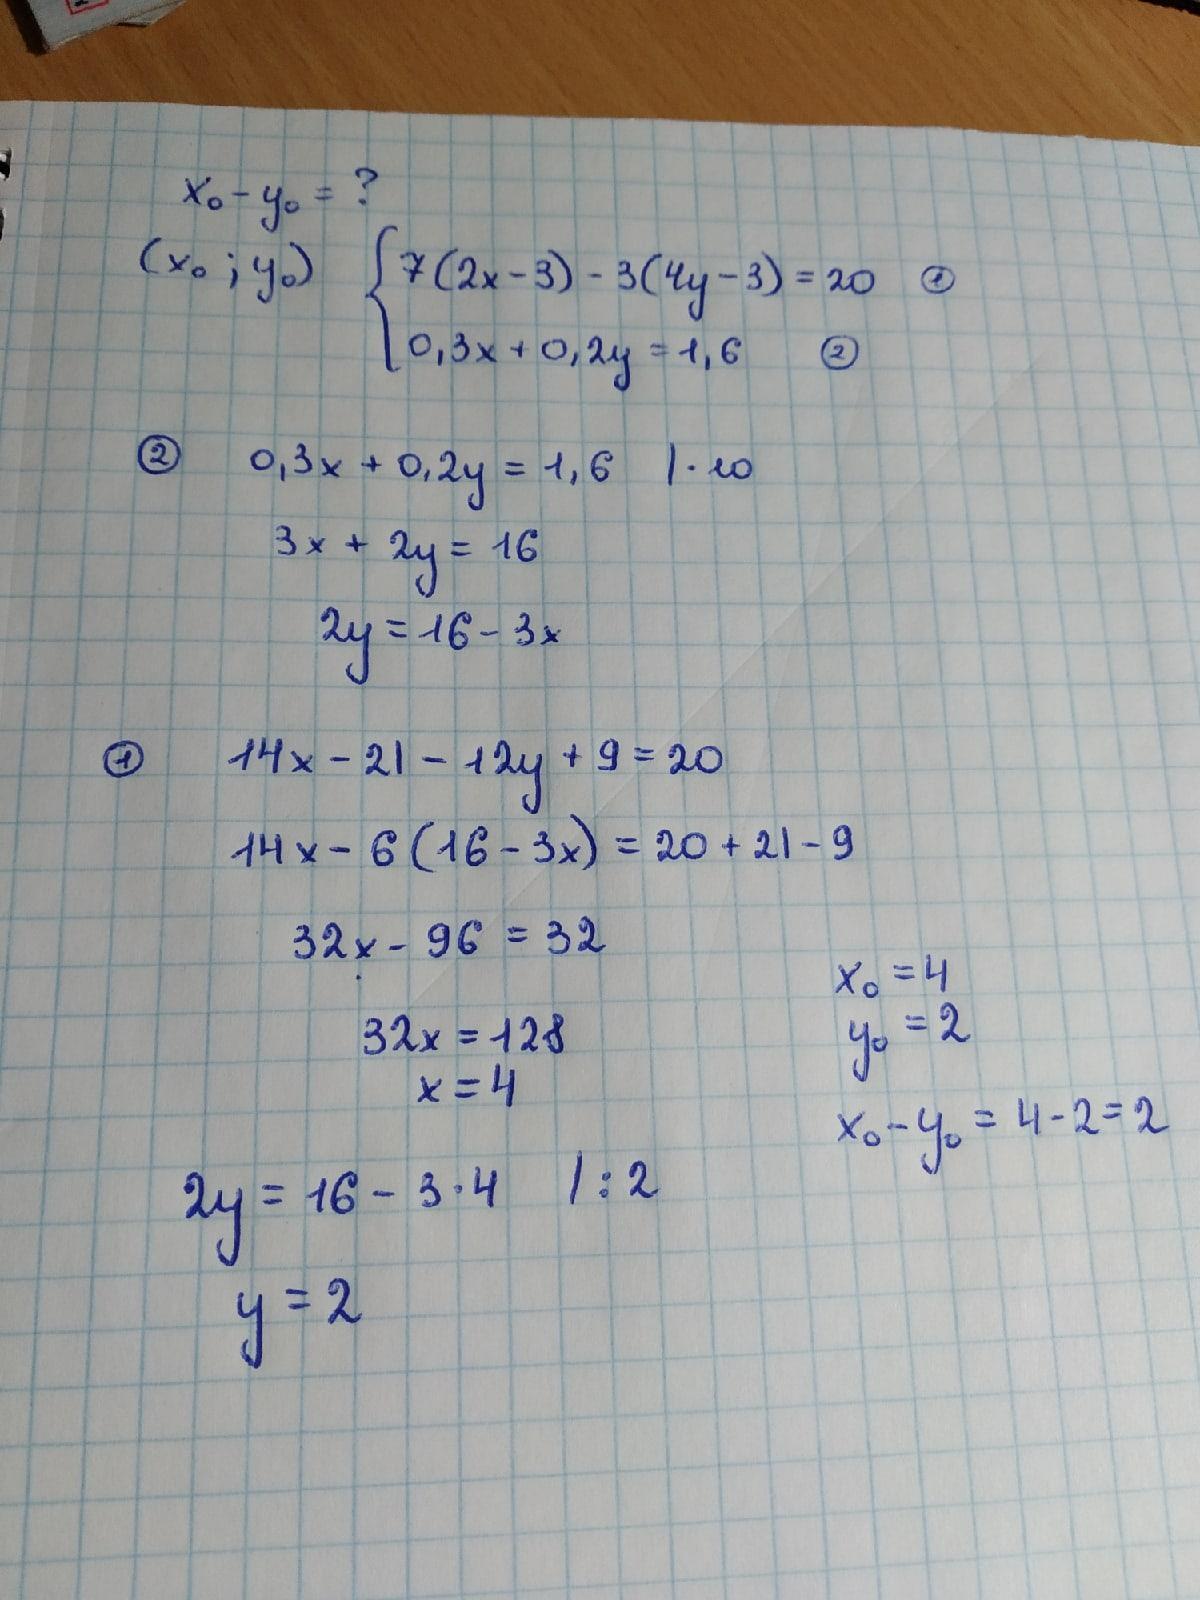 x₀ - y₀ = ?
(x₀ ; y₀) { 7(2x - 3) - 3(4y - 3) = 20 ①
0,3x + 0,2y = 1,6 ②
② 0,3x + 0,2y = 1,6 | · 10
3x + 2y = 16
2y = 16 - 3x
① 14x - 21 - 12y + 9 = 20
14x - 6(16 - 3x) = 20 + 21 - 9
32x - 96 = 32
32x = 128
x = 4
2y = 16 - 3 · 4 | : 2
y = 2
x₀ = 4
y₀ = 2
x₀ - y₀ = 4 - 2 = 2